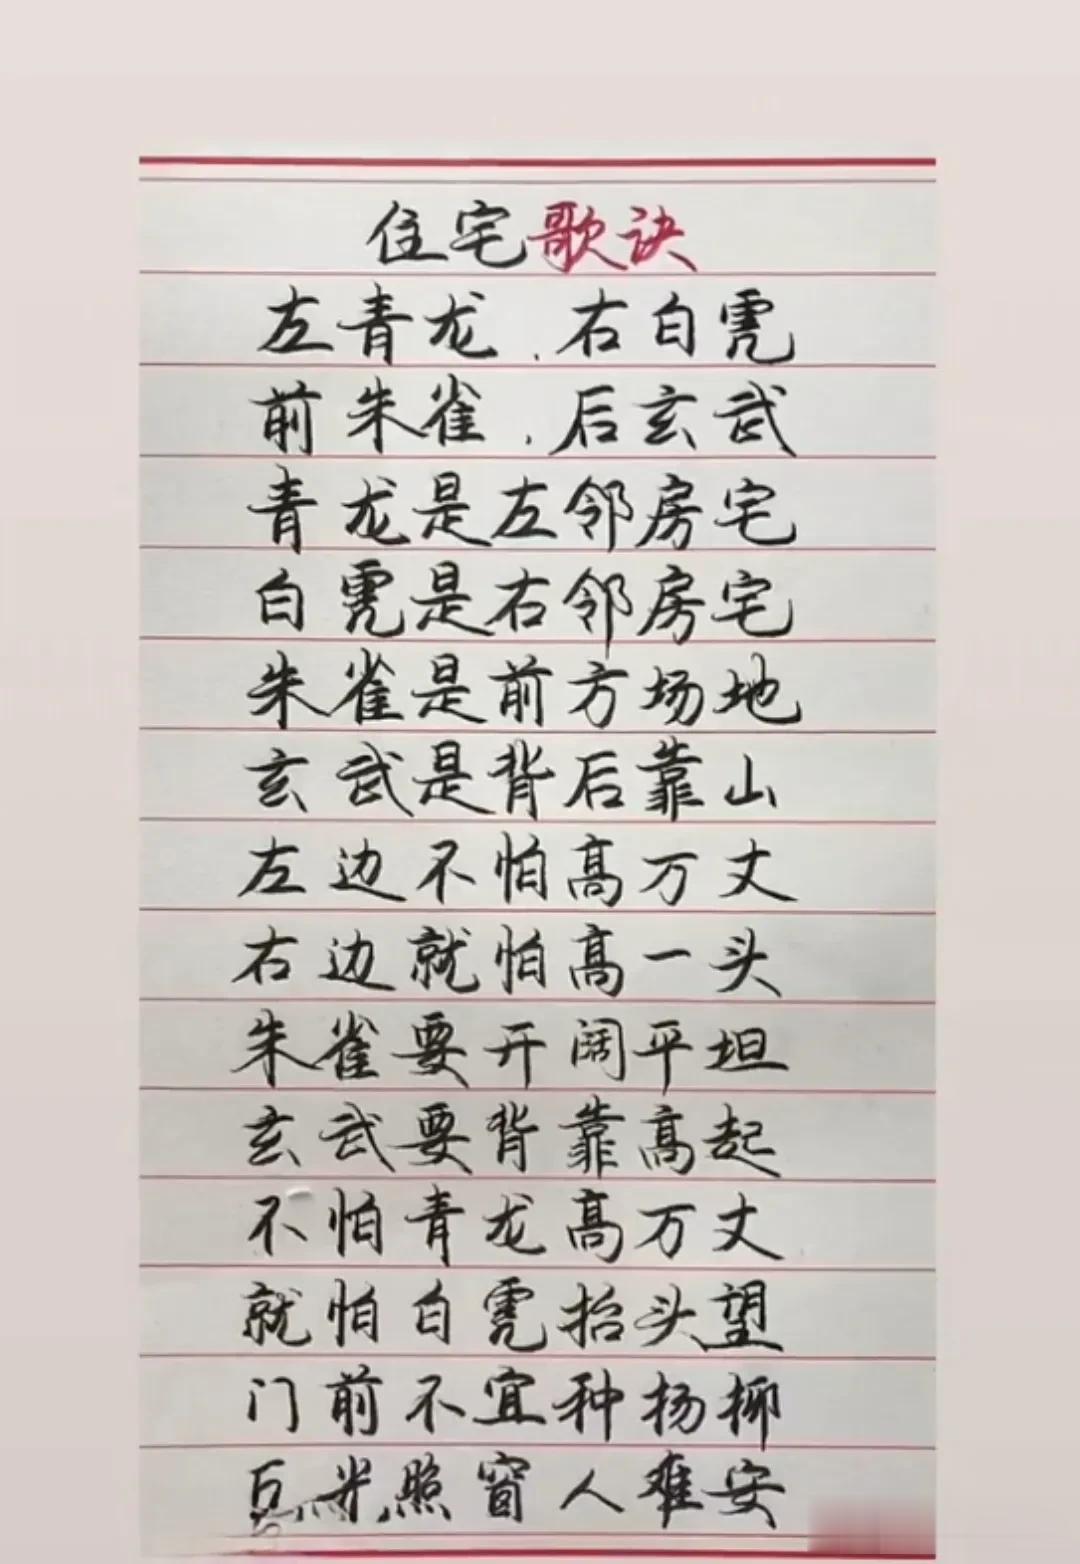 住宅歌诀
左青龙、右白虎
前朱雀、后玄武
青龙是左邻房宅
白虎是右邻房宅
朱雀是前方场地
玄武是背后靠山
左边不怕高万丈
右边就怕高一头
朱雀要开阔平坦
玄武要背靠高起
不怕青龙高万丈
就怕白虎抬头望
门前不宜种杨柳
光照窗人难安